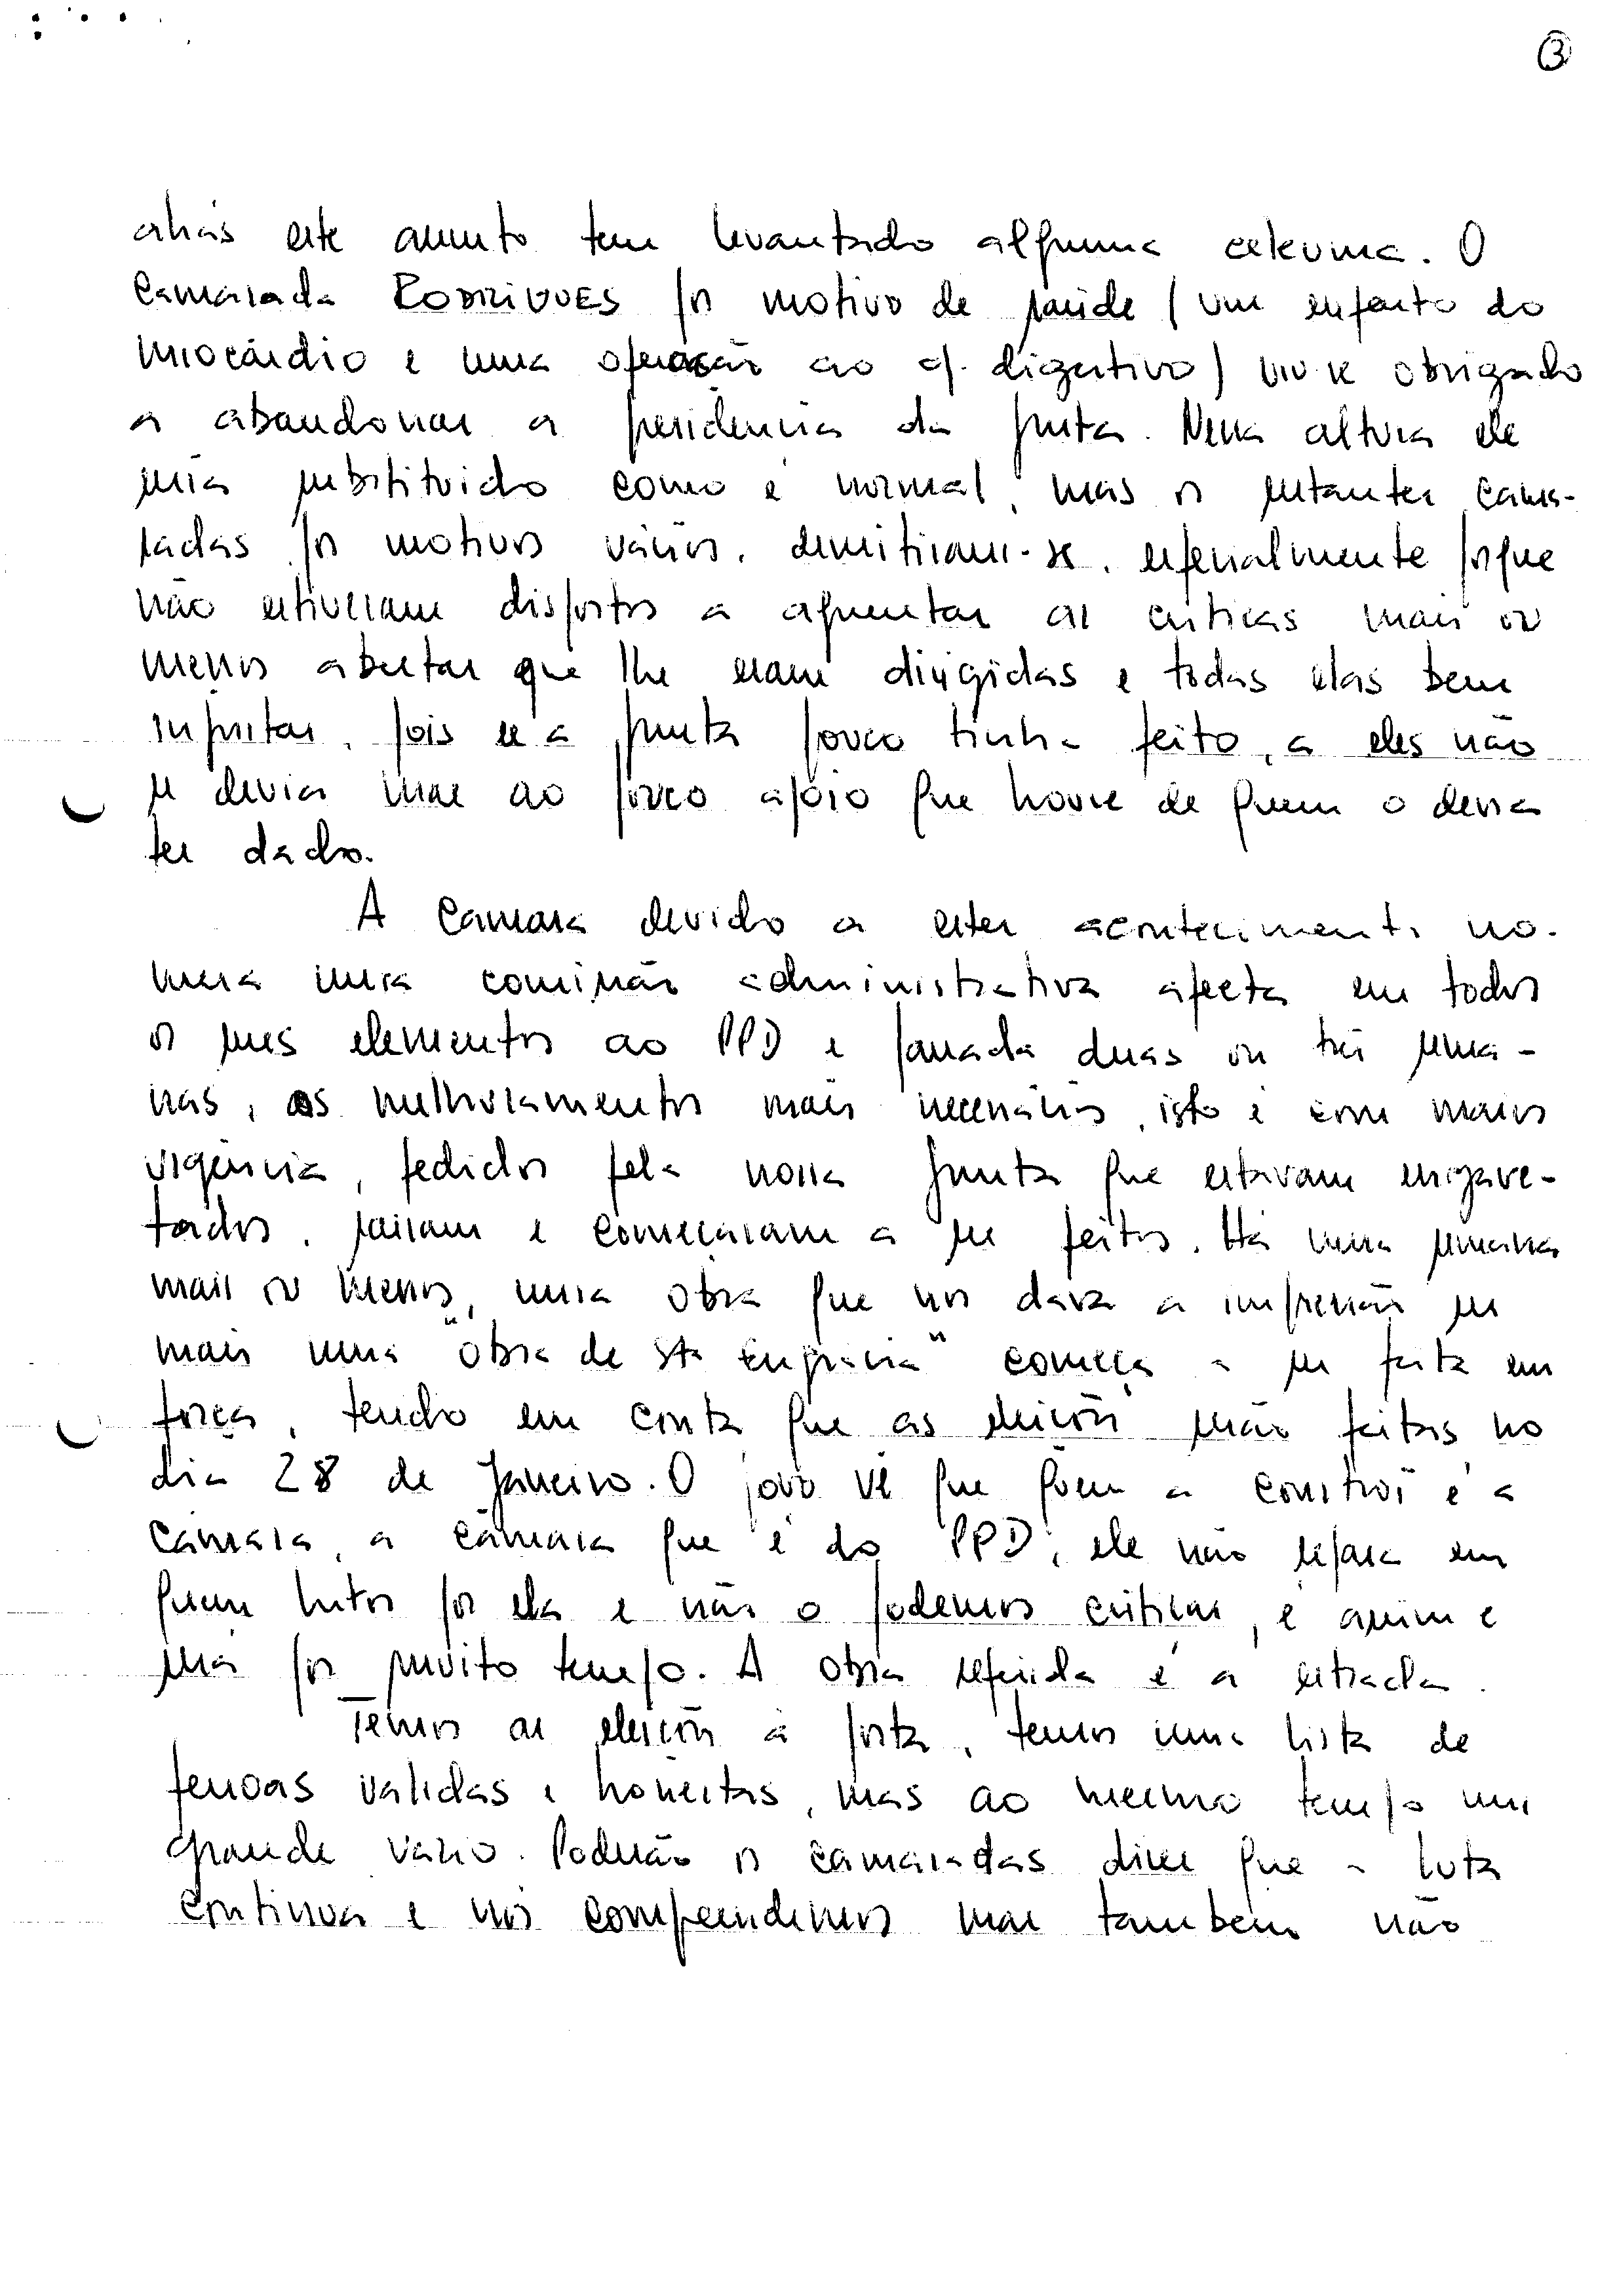 3
aliás este assunto tem levantado alguma celeuma. O
camarada RODRIGUES por motivo de saúde (um enfarto do
miocárdio e uma operação ao ap. digestivo) viu-se obrigado
a abandonar a presidencia da Junta. Nessa altura ele
seria substituido como é normal, mas os restantes cama-
radas por motivos vários, demitiram-se, especialmente porque
não estiveram dispostos a aguentar as criticas mais ou
menos abertas que lhe eram dirigidas e todas elas bem
injustas, pois se a Junta pouco tinha feito, a eles não
se devia mas ao pouco apoio que houve de quem o devia
ter dado.
A Câmara devido a estes acontecimentos no-
meia uma comissão administrativa afecta em todos
os seus elementos ao PPD e passada duas ou três sema-
nas, os melhoramentos mais necessários, isto é com maior
urgência, pedidos pela nossa Junta que estavam engave-
tados, sairam e começaram a ser feitos. Há uma semana
mais ou menos, uma obra que nos dava a impressão ser
mais uma "obra de Stª Engrácia" começa a ser feita em
força, tendo em conta que as eleições serão feitas no
dia 28 de Janeiro. O povo vê que quem a constroi é a
câmara, a câmara que é do PPD, ele não repara em
quem lutou por ela e não o podemos criticar, é assim e
será por muito tempo. A obra referida é a estrada.
Temos as eleições à porta, temos uma lista de
pessoas validas e honestas, mas ao mesmo tempo um
grande vazio. Poderão os camaradas dizer que a luta
continua e nós compreendemos mas tambem não